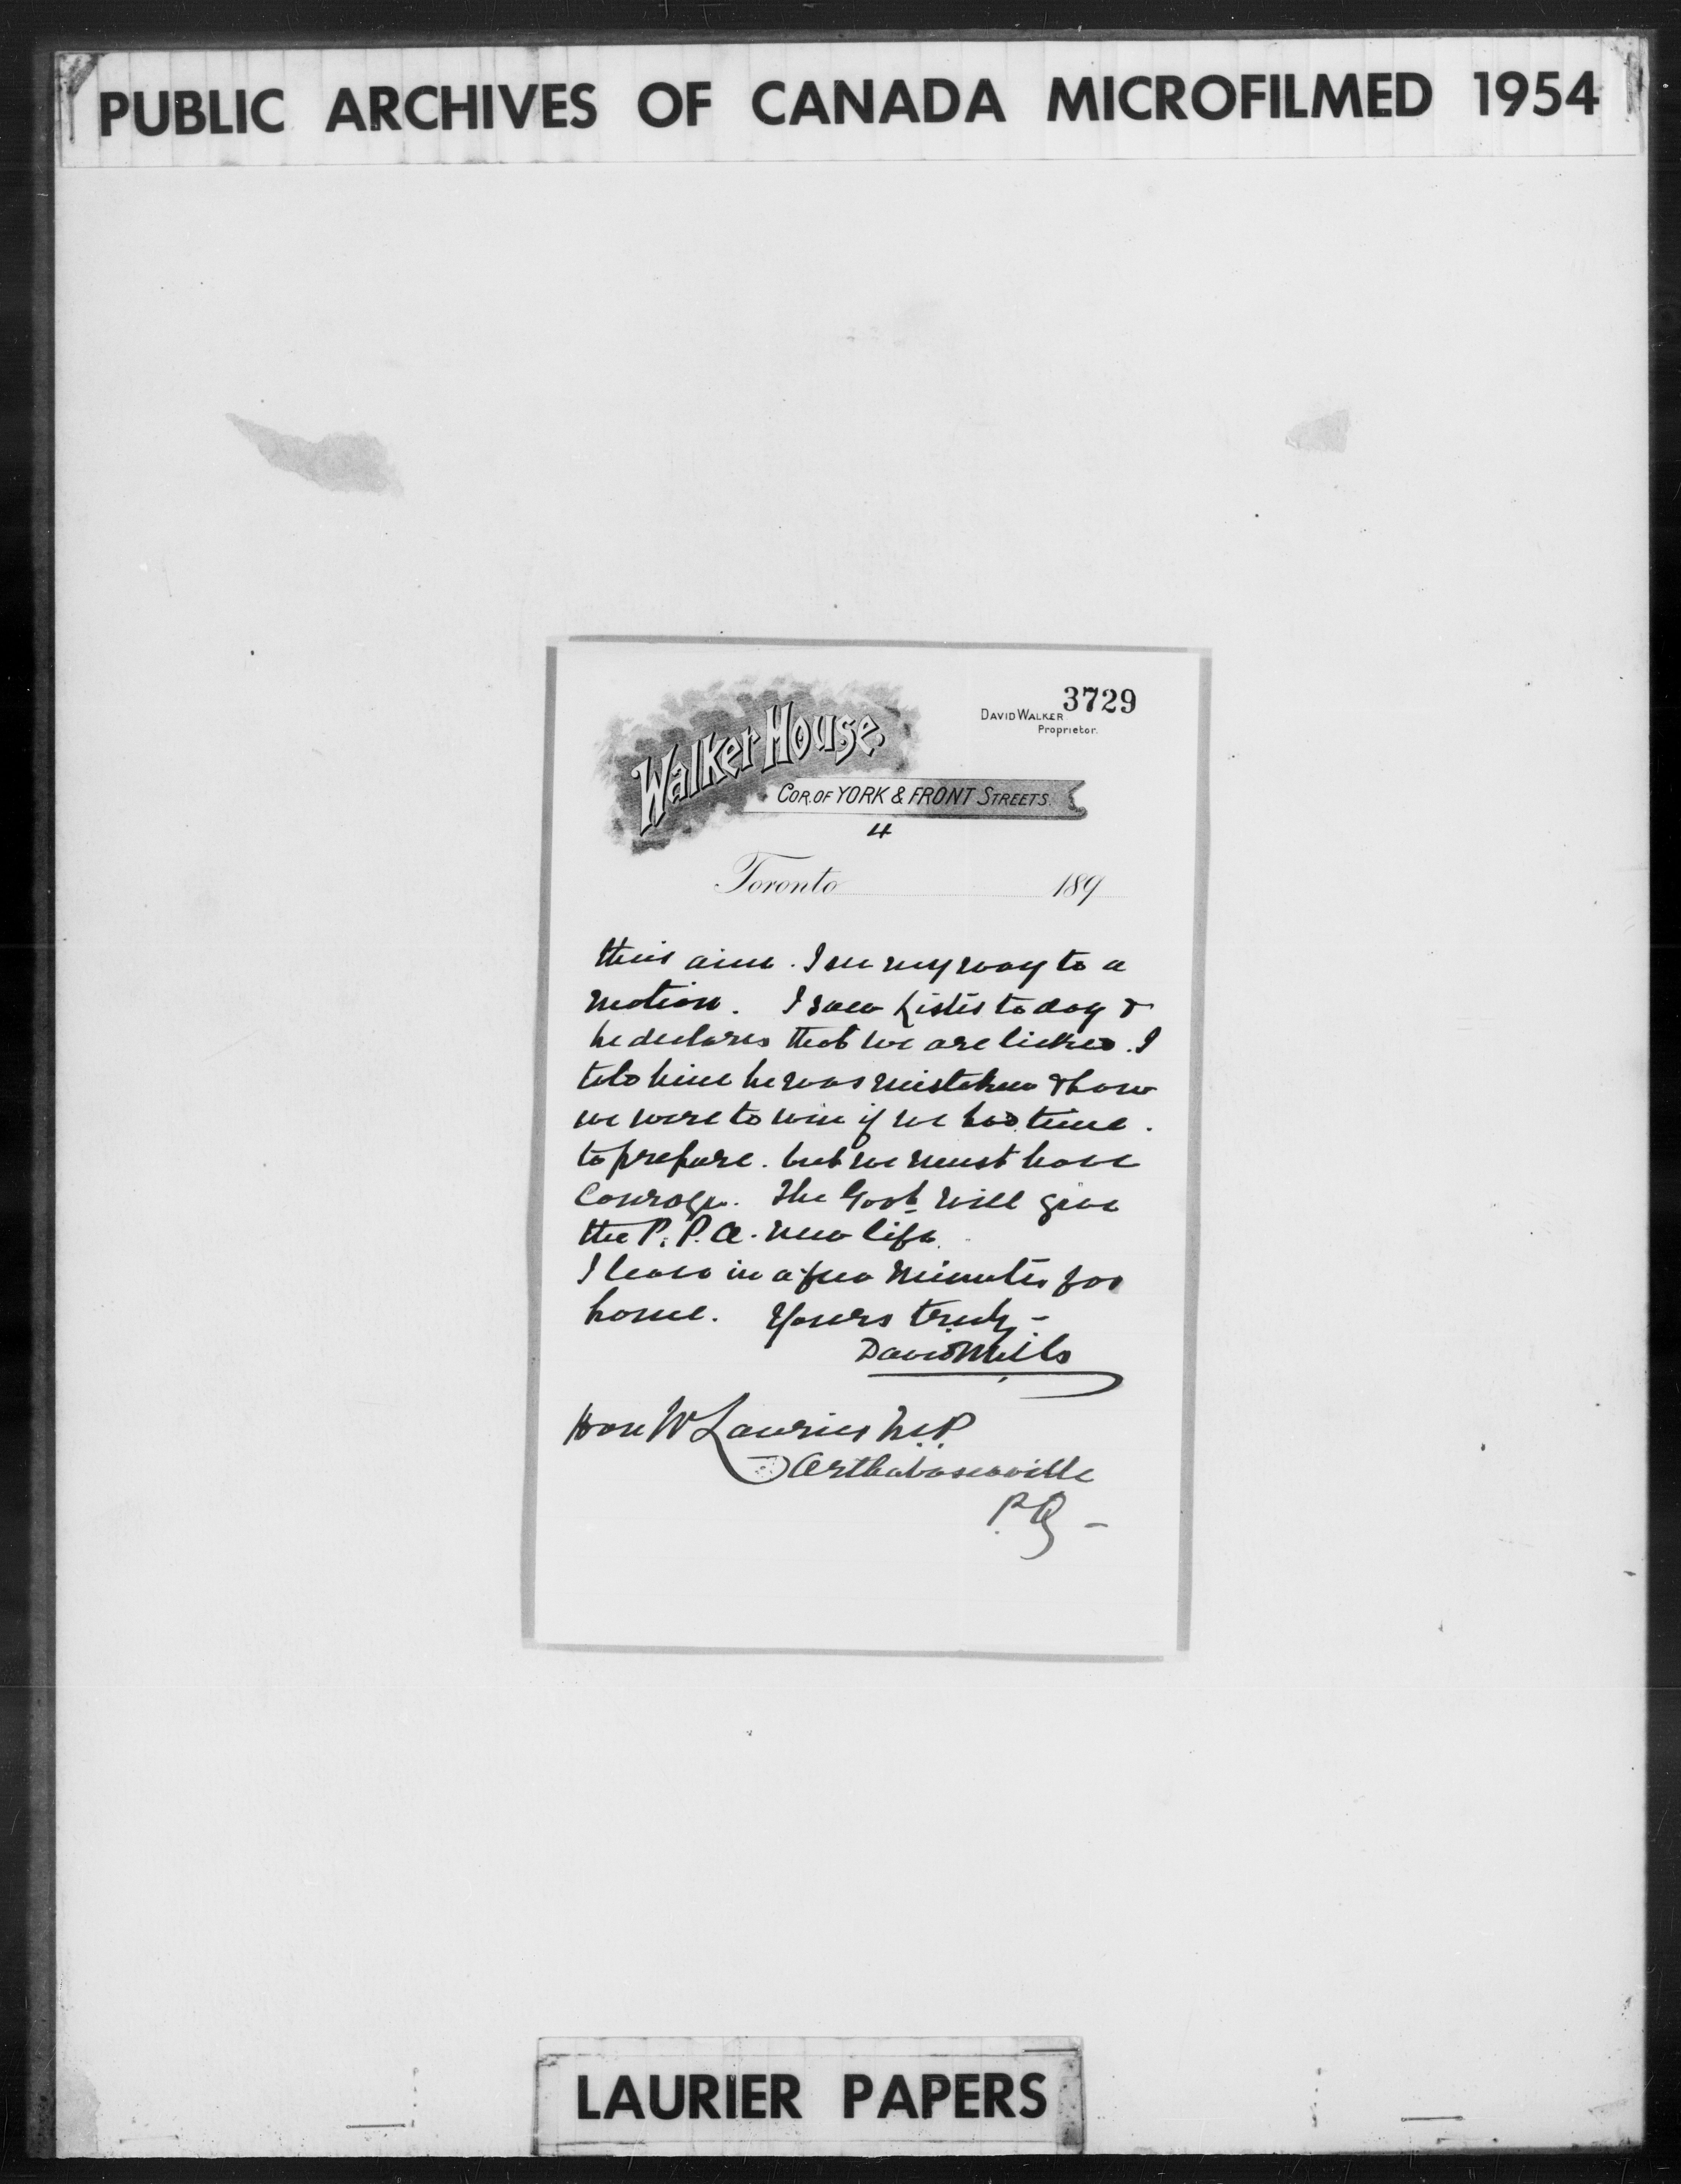 PUBLIC ARCHIVES OF CANADA MICROFILMED 1954
3729
DAVID WALKER
Proprietor.
Walker House.
COR. OF YORK & FRONT STREETS.
4
Toronto 189
their aim. I see my way to a
motion. I saw Lister today &
he declares that we are licked. I
told him he was mistaken & how
we were to win if we had time.
to prepare. but we must have
Courage. The Govt will give
the P. P. A. new life.
I leave in a few minutes for
home. Yours truly -
David Mills
Hon W Laurier M.P.
Arthabascaville
P.Q -
LAURIER PAPERS